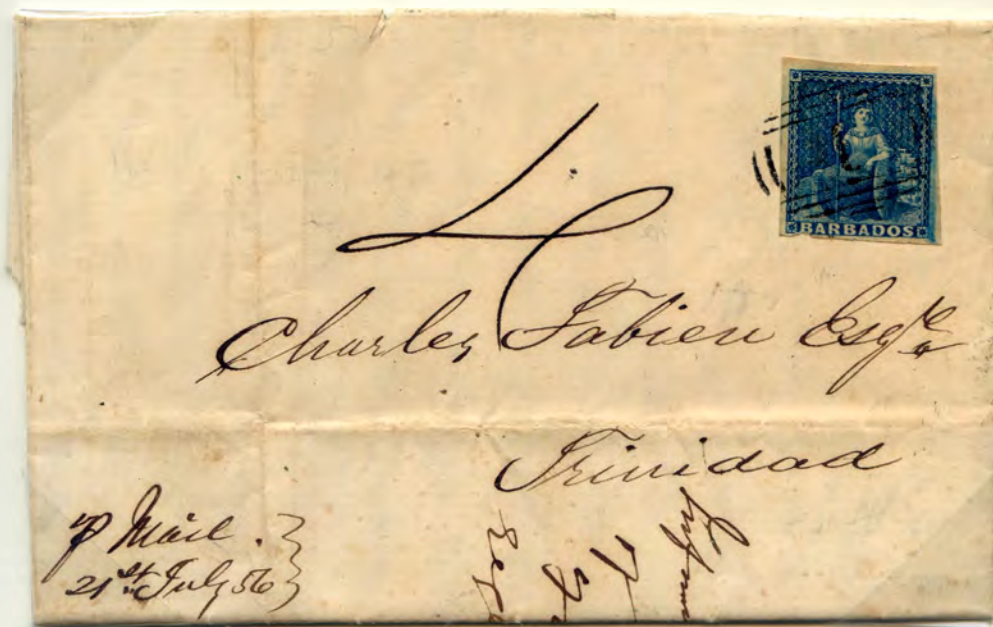 BARBADOS
4
Charles Fabien Esqre
Trinidad
p Mail.
21st July 56